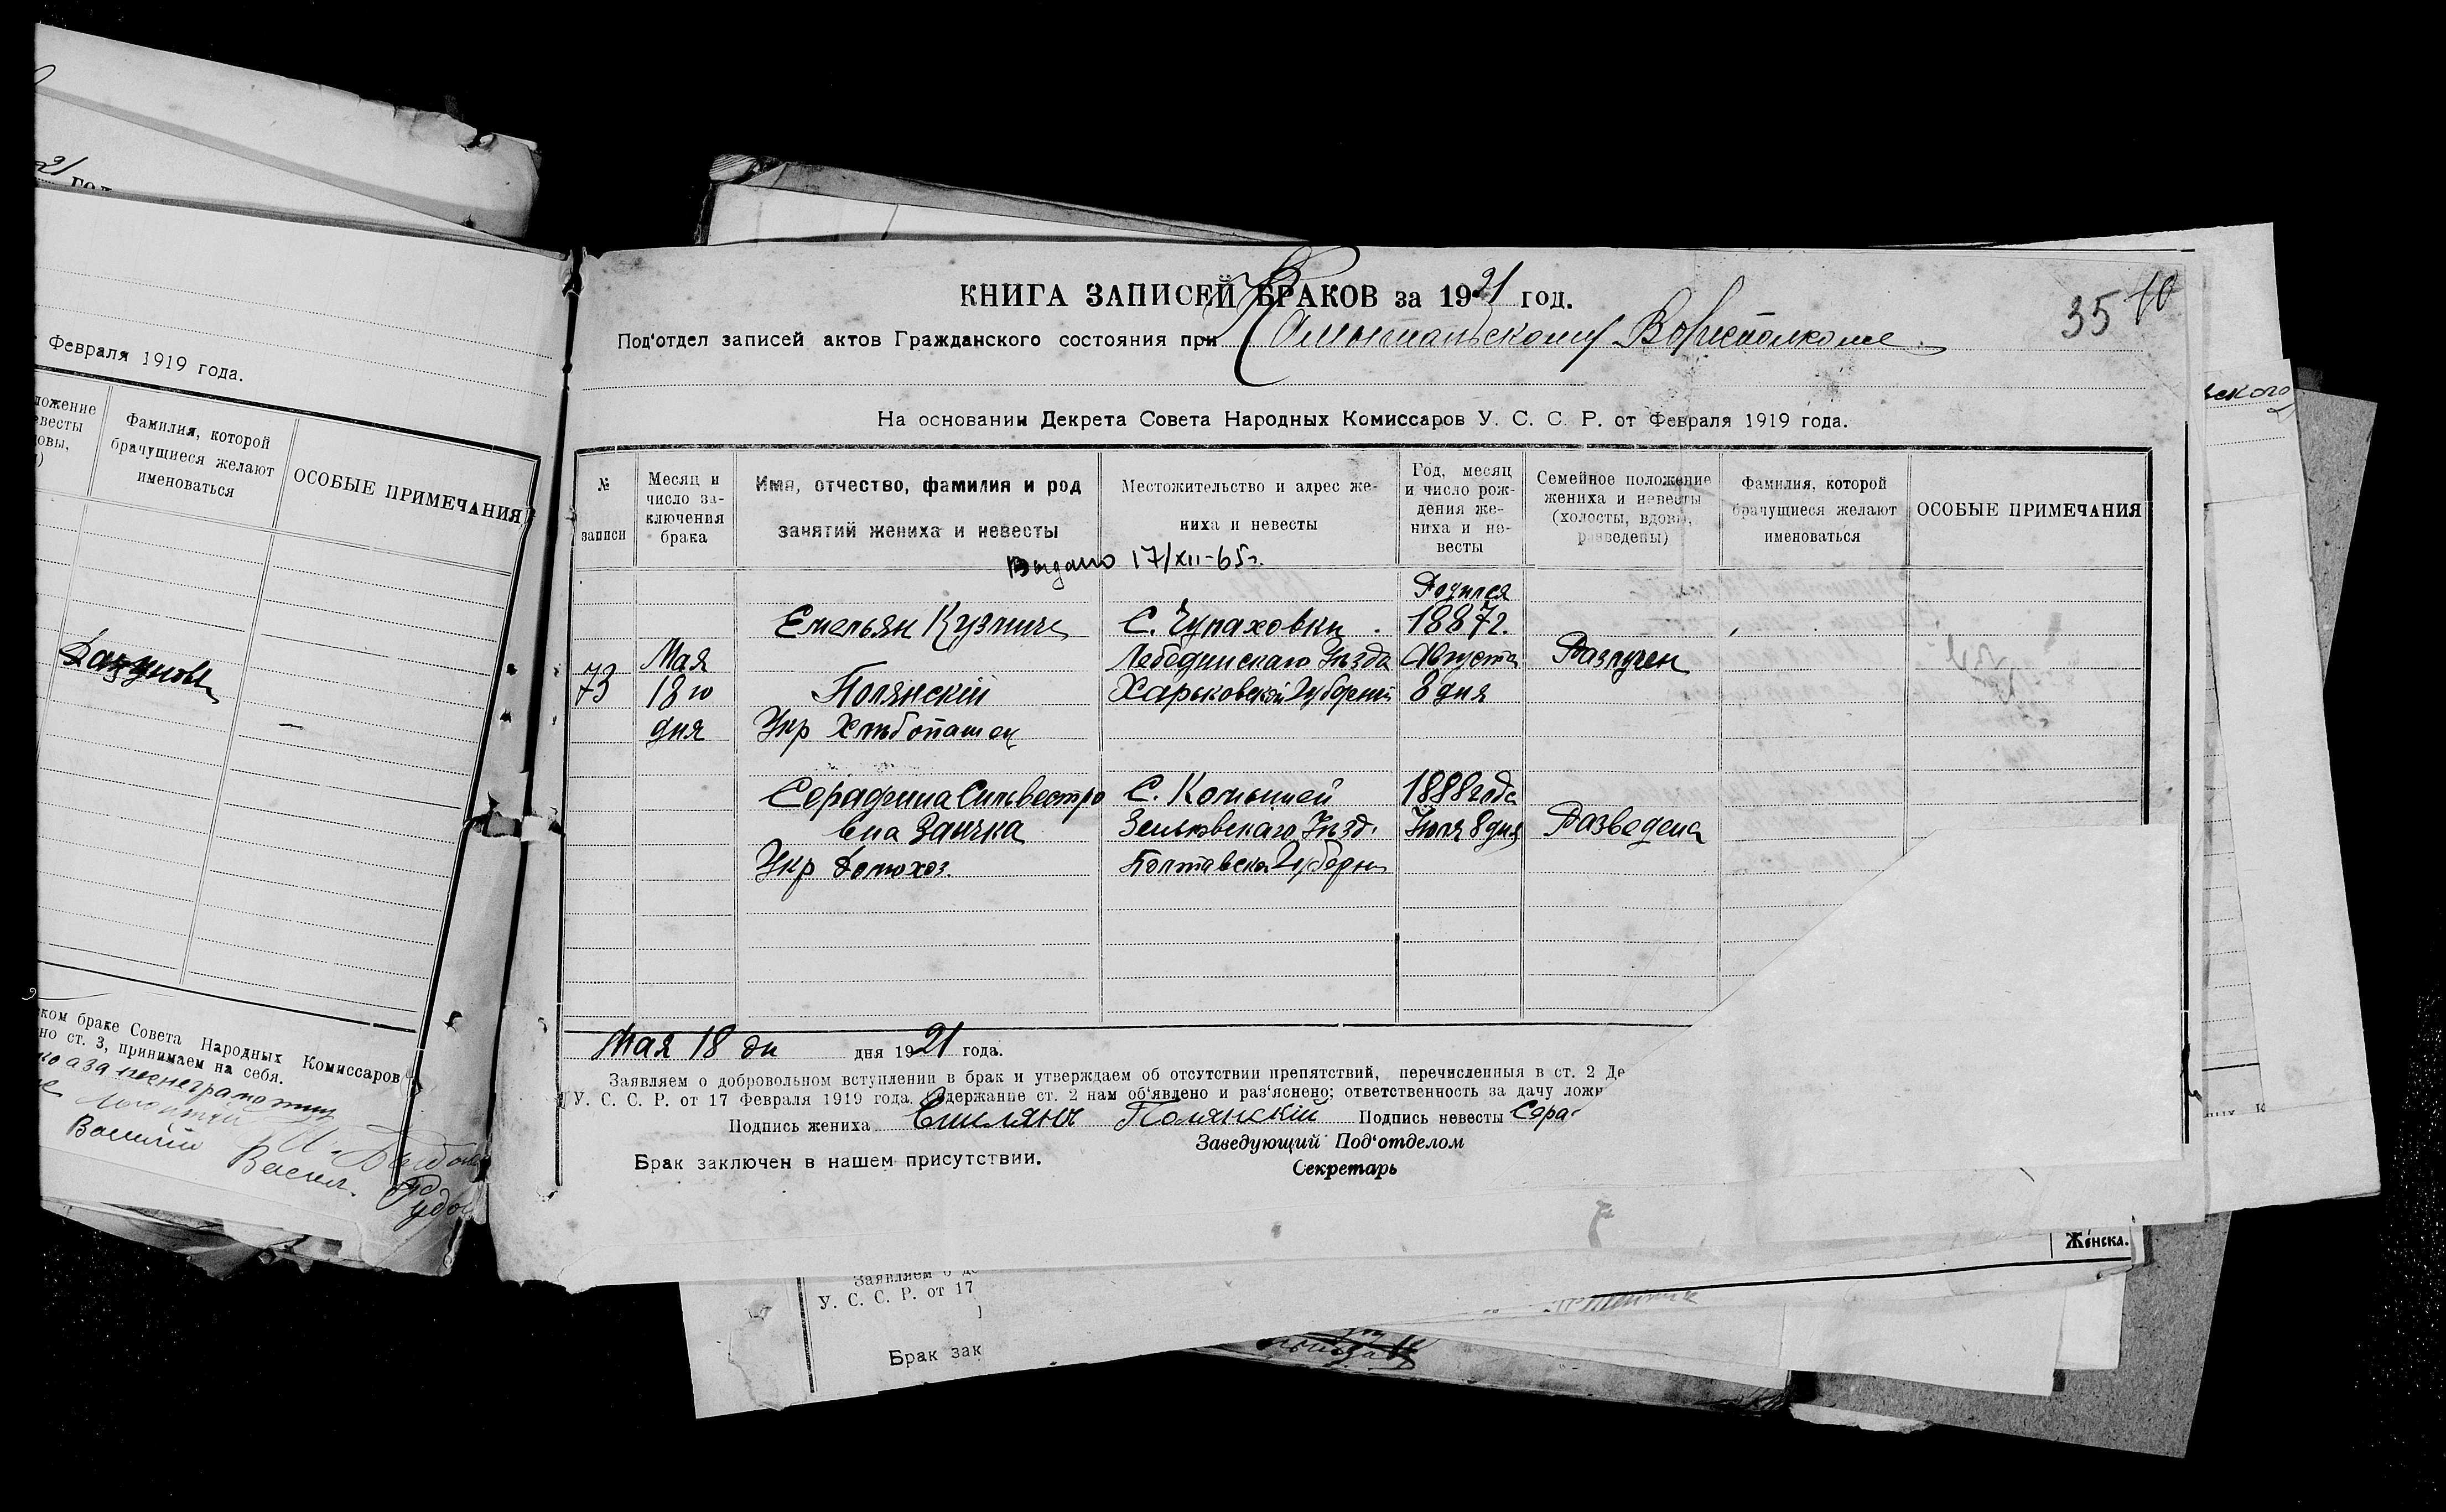 21 год
Февраля 1919 года.
Фамилия, которой
брачущиеся желают
именоваться
ОСОБЫЕ ПРИМЕЧАНИЯ
ком браке Совета Народных Комиссаров
но ст. 3, принимаем на себя.
Василий
КНИГА ЗАПИСЕЙ БРАКОВ за 1921 год.
35 10
Под'отдел записей актов Гражданского состояния при
На основании Декрета Совета Народных Комиссаров У. С. С. Р. от Февраля 1919 года.
№ записи
Месяц и число за-
ключения
брака
Имя, отчество, фамилия и род
занятий жениха и невесты
Местожительство и адрес же-
ниха и невесты
Год, месяц
и число рож-
дения же-
ниха и не-
весты
Семейное положение
жениха и невесты
(холосты, вдовы,
разведены)
Фамилия, которой
брачущиеся желают
именоваться
ОСОБЫЕ ПРИМЕЧАНИЯ
Выдано 17/XII-65г.
Родился
Емельян Кузмич С. Чупаховки 1887г.
Мая Лебединскаго Уѣзда Августа
73 18го Полянскій Харьковской Губерніи 8 дня
дня Укр Хлѣбопашец
Серафима Сильвестро С. Комышей 1888 года
вна Заичка Зеньковскаго Уѣзд. Июля 8 дня Разведена
Укр Домохоз. Полтавской Губерни
Мая 18 дн дня 1921 года.
Заявляем о добровольном вступлении в брак и утверждаем об отсутствии препятствий, перечисленныя в ст. 2 Де
У. С. С. Р. от 17 Февраля 1919 года. Содержание ст. 2 нам об'явлено и раз'яснено; ответственность за дачу лож
Подпись жениха Емилянъ Полянскій Подпись невесты Сера
Заведующий Под'отделом
Брак заключен в нашем присутствии.
Секретарь
Женска.
Заявляем о до
У. С. С. Р. от 17
Брак зак